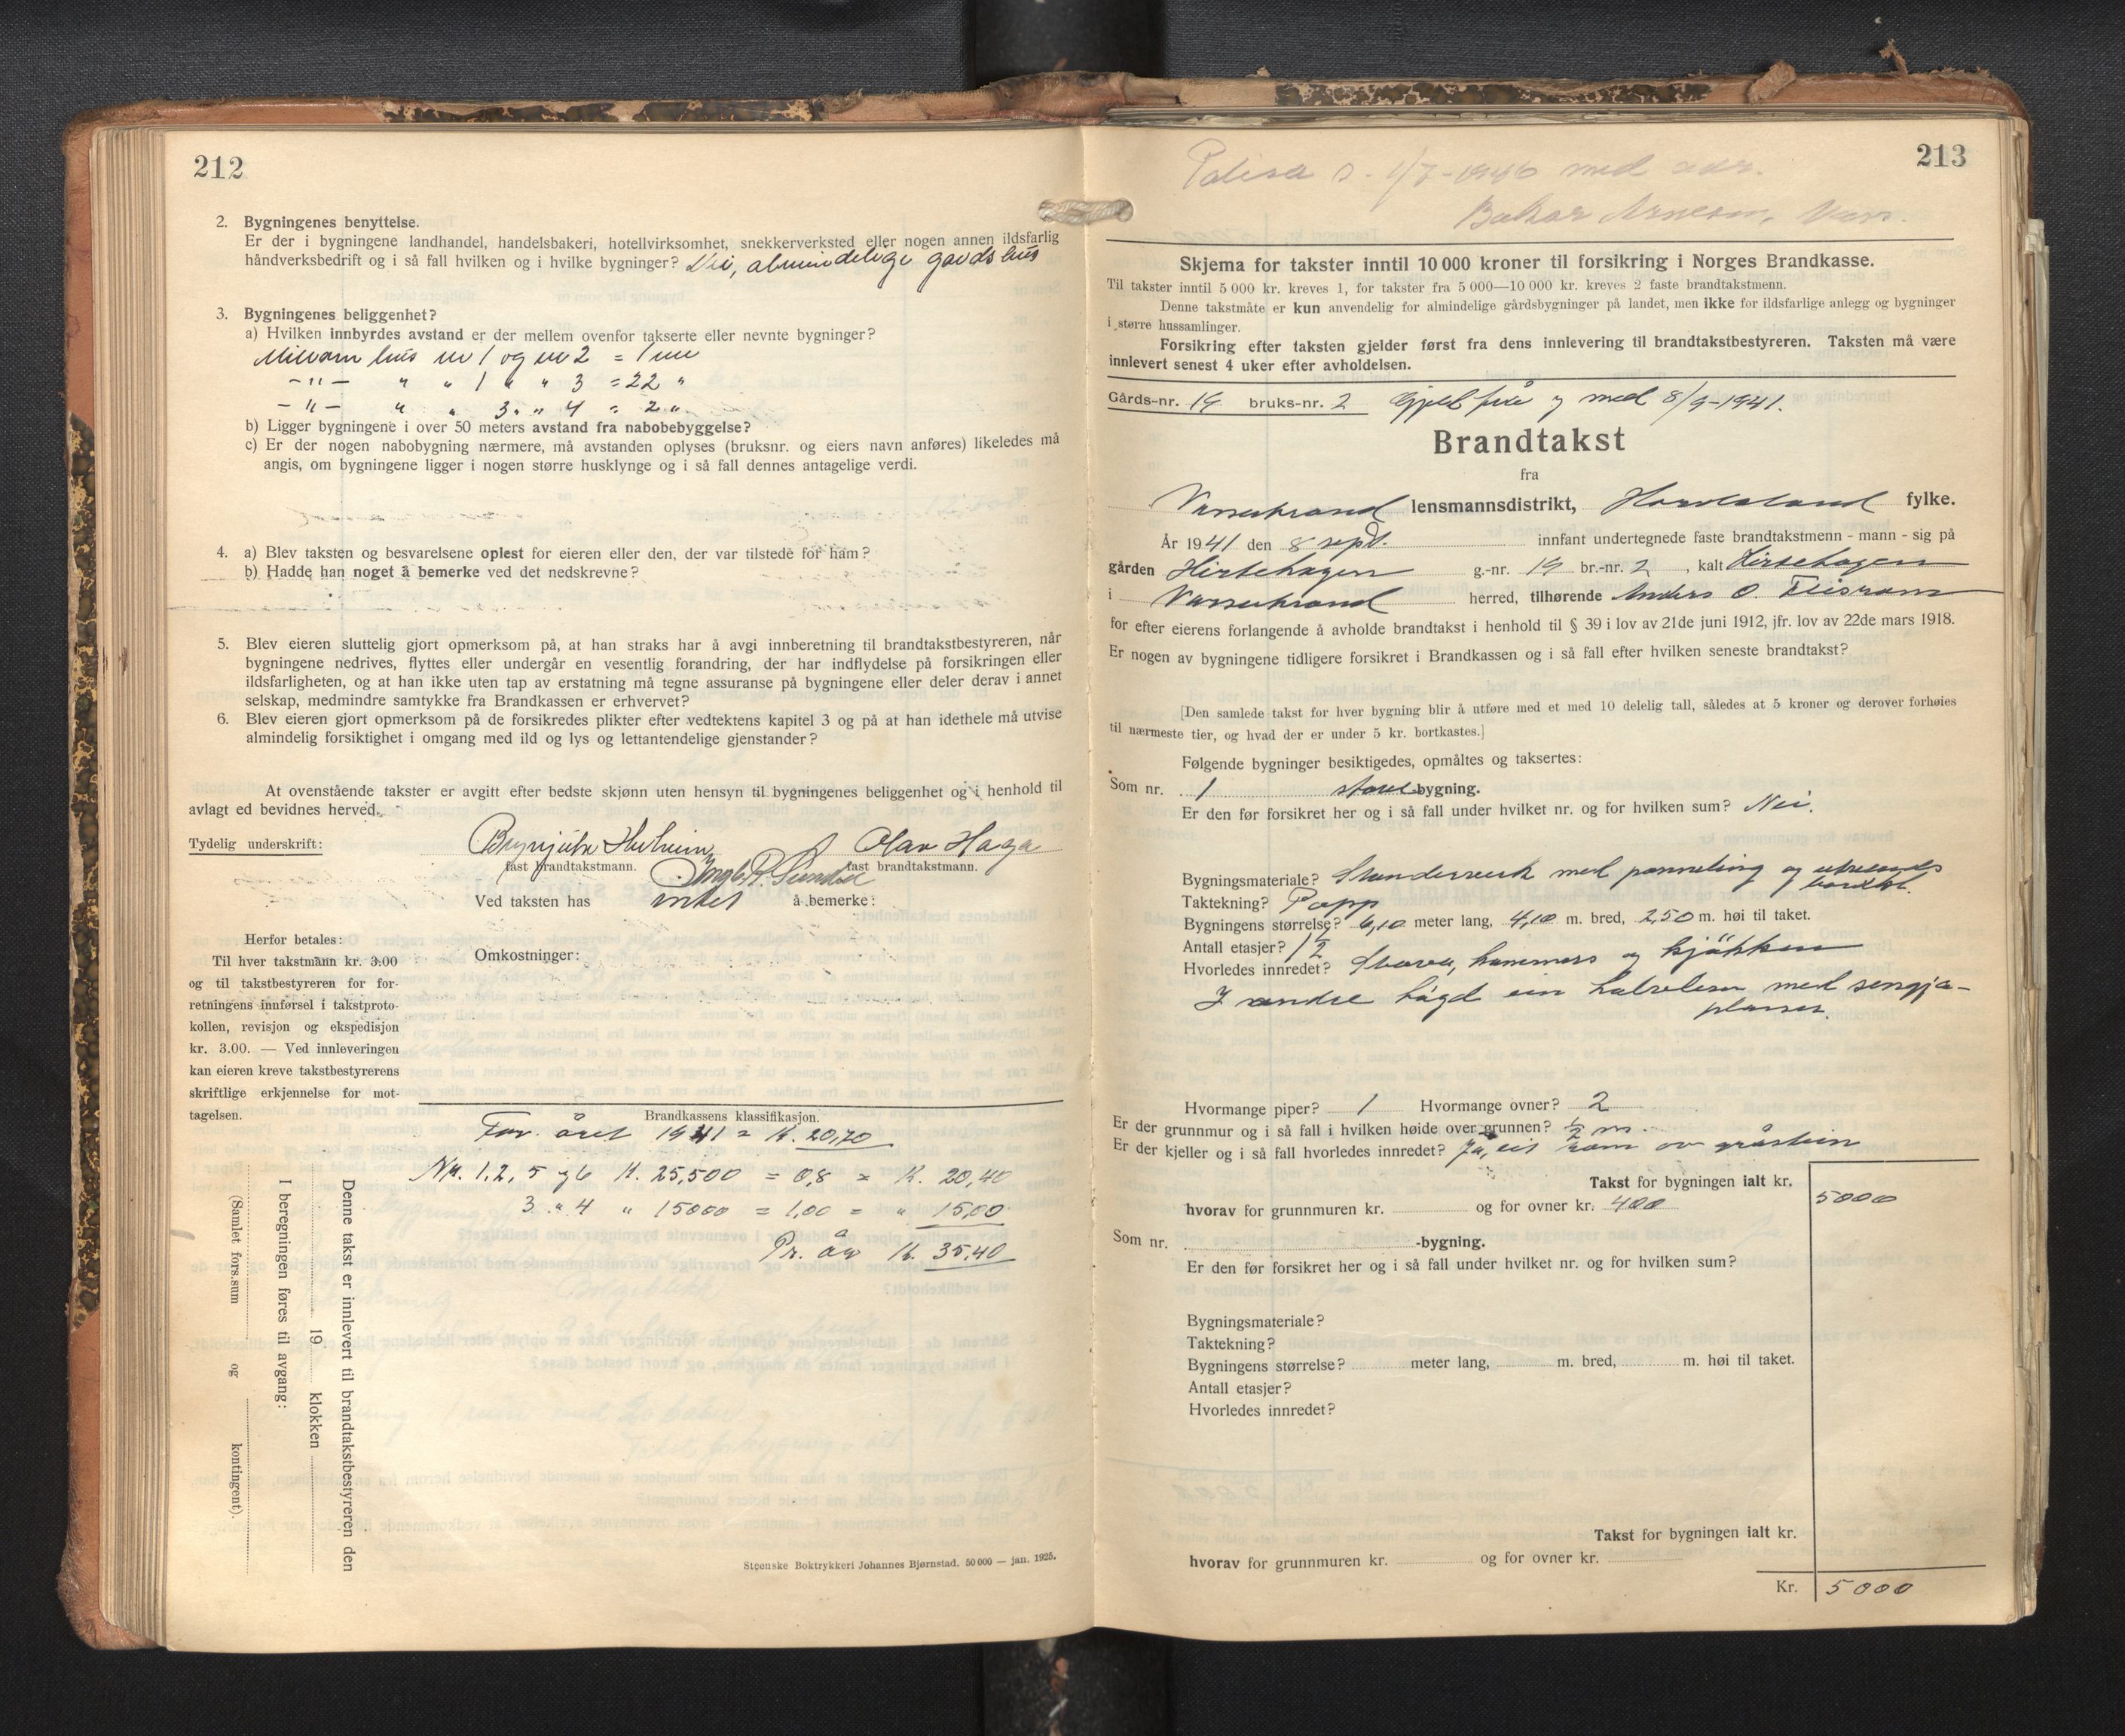 212
2. Bygningenes benyttelse.
Er der i bygningene landhandel, handelsbakeri, hotellvirksomhet, snekkerverksted eller nogen annen ildsfarlig
håndverksbedrift og i så fall hvilken og i hvilke bygninger? Nei, almindelige gardshus
3. Bygningenes beliggenhet?
a) Hvilken innbyrdes avstand er der mellem ovenfor takserte eller nevnte bygninger?
Millom hus nr 1 og nr 2 = 1 m
-"- " " 1 " " 3 = 22 "
-"- " " 3 " " 4 = 2 "
b) Ligger bygningene i over 50 meters avstand fra nabobebyggelse?
c) Er der nogen nabobygning nærmere, må avstanden oplyses (bruksnr. og eiers navn anføres) likeledes må
angis, om bygningene ligger i nogen større husklynge og i så fall dennes antagelige verdi.
4. a) Blev taksten og besvarelsene oplest for eieren eller den, der var tilstede for ham?
b) Hadde han noget å bemerke ved det nedskrevne?
5. Blev eieren sluttelig gjort opmerksom på, at han straks har å avgi innberetning til brandtakstbestyreren, når
bygningene nedrives, flyttes eller undergår en vesentlig forandring, der har indflydelse på forsikringen eller
ildsfarligheten, og at han ikke uten tap av erstatning må tegne assuranse på bygningene eller deler derav i annet
selskap, medmindre samtykke fra Brandkassen er erhvervet?
6. Blev eieren gjort opmerksom på de forsikredes plikter efter vedtektens kapitel 3 og på at han idethele må utvise
almindelig forsiktighet i omgang med ild og lys og lettantendelige gjenstander?
At ovenstående takster er avgitt efter bedste skjønn uten hensyn til bygningenes beliggenhet og i henhold til
avlagt ed bevidnes herved.
Tydelig underskrift: Olav Haga
fast brandtakstmann. fast brandtakstmann.
Ved taksten has intet å bemerke:
Herfor betales:
Til hver takstmann kr. 3.00
og til takstbestyreren for for-
retningens innførsel i takstproto-
kollen, revisjon og ekspedisjon
kr. 3.00. — Ved innleveringen
kan eieren kreve takstbestyrerens
skriftlige erkjennelse for mot-
tagelsen.
Omkostninger:
Brandkassens klassifikasjon.
For året 1941 = K. 20,70
Nr. 1, 2, 5 og 6 K. 25,500 = 0,8 = K. 20,40
3 " 4 " 15000 = 1,00 = " 15,00
Pr. år K. 35,40
Denne takst er innlevert til brandtakstbestyreren den
19 klokken
I beregningen føres til avgang:
(Samlet fors.sum og kontingent).
Steenske Boktrykkeri Johannes Bjørnstad. 50 000 — jan. 1925.
213
Polise d. 1/7-1946 med
Skjema for takster inntil 10 000 kroner til forsikring i Norges Brandkasse.
Til takster inntil 5 000 kr. kreves 1, for takster fra 5 000—10 000 kr. kreves 2 faste brandtakstmenn.
Denne takstmåte er kun anvendelig for almindelige gårdsbygninger på landet, men ikke for ildsfarlige anlegg og bygninger
i større hussamlinger.
Forsikring efter taksten gjelder først fra dens innlevering til brandtakstbestyreren. Taksten må være
innlevert senest 4 uker efter avholdelsen.
Gårds-nr. 19 bruks-nr. 2 Gjeld frå og med 8/9-1941.
Brandtakst
fra
Vossestrand lensmannsdistrikt, Hordaland fylke.
År 1941 den 8 sept. innfant undertegnede faste brandtakstmenn - mann - sig på
gården Hirtehagen g.-nr. 19 br.-nr. 2, kalt Hirtehagen
i Vossestrand herred, tilhørende Anders O.
for efter eierens forlangende å avholde brandtakst i henhold til § 39 i lov av 21de juni 1912, jfr. lov av 22de mars 1918.
Er nogen av bygningene tidligere forsikret i Brandkassen og i så fall efter hvilken seneste brandtakst?
[Den samlede takst for hver bygning blir å utføre med et med 10 delelig tall, således at 5 kroner og derover forhøies
til nærmeste tier, og hvad der er under 5 kr. bortkastes.]
Følgende bygninger besiktigedes, opmåltes og taksertes:
Som nr. 1 bygning.
Er den før forsikret her og i så fall under hvilket nr. og for hvilken sum? Nei.
Bygningsmateriale? Standerverk med panneling og utvendes bordkl.
Taktekning? Papp
Bygningens størrelse? 6,10 meter lang, 4,10 m. bred, 2,50 m. høi til taket.
Antall etasjer? 1 1/2
Hvorledes innredet? Stova, kammers og kjökken
I andre högd ein med sengja-
plasser.
Hvormange piper? 1 Hvormange ovner? 2
Er der grunnmur og i så fall i hvilken høide over grunnen? 1/2 m.
Er der kjeller og i så fall hvorledes innredet? Ja, eit rom av gråstein
Takst for bygningen ialt kr. 5000
hvorav for grunnmuren kr. og for ovner kr. 400
Som nr. -bygning.
Er den før forsikret her og i så fall under hvilket nr. og for hvilken sum?
Bygningsmateriale?
Taktekning?
Bygningens størrelse? meter lang, m. bred, m. høi til taket.
Antall etasjer?
Hvorledes innredet?
Takst for bygningen ialt kr.
hvorav for grunnmuren kr. og for ovner kr.
Kr. 5000